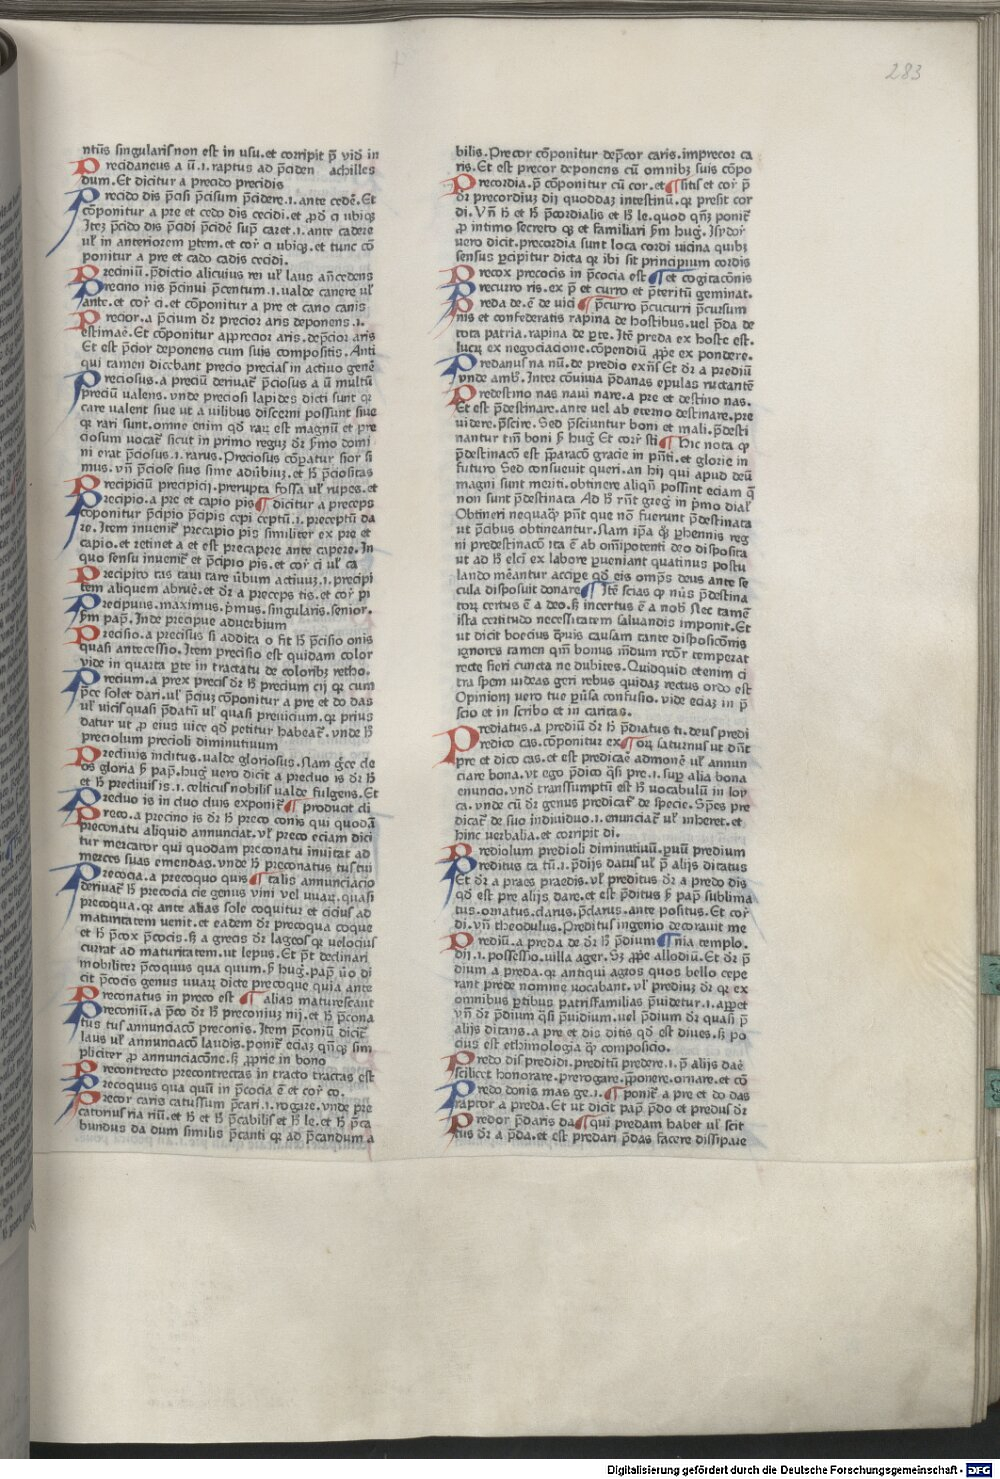 283
ntũs singularis non est in usu.et corripit p̄ vid̄ in
Precidaneus a ũ.i.raptus ad p̄ciden achilles
dum.Et dicitur a precido precidis
Precido dis p̄cisi p̄cisum p̄cidere.i.ante cedē.Et
cōponitur a pre et cedo dis cecidi.et
ponitur a pre et cado cadis cecidi.
Preciniũ.p̄dictio alicuius rei ul̄ laus an̄cedens
Precino nis p̄cinui p̄centum.i.ualde canere ul̄
ante.et cor̄ ci.et cōponitur a pre et cano canis
Precior.a p̄cium dr̄ precior aris deponens.i.
estimaē.Et cōponitur apprecior aris.dep̄cior aris
Et est p̄cior deponens cum suis compositis.Anti
qui tamen dicebant precio precias in actiuo genē
Preciosus.a preciũ deriuat̄ p̄ciosus a ũ multũ
preciũ ualens.vnde preciosi lapides dicti sunt qr
care ualent siue ut a uilibus discerni possunt siue
qr rari sunt.omne enim qd̄ rar̄ est magnũ et pre
ciosum uocat̄ sicut in primo regũ dr̄ sermo domi
ni erat p̄ciosus.i.rarus.Preciosus cōparatur sior si
mus.vn̄ p̄ciose sius sime aduerbiũ.et h̄ p̄ciositas
Precipiciũ precipicij.prerupta fossa ul̄ rupes.et
Precipio.a pre et capio pis ¶ dicitur a preceps
cōponitur p̄cipio p̄cipis cepi ceptũ.i.preceptũ da
re.Item inuenit̄ precapio pis similiter ex pre et
capio.et retinet a et est precapere ante capere.In
quo sensu inuenit̄ et p̄cipio pis.et cor̄ ci ul̄ ca
Precipito tas taui tare ũbum actiuũ.i.precipi
tem aliquem abruē.et dr̄ a preceps tis.et cor̄ pi
Precipuus.maximus.p̄mus.singularis.senior.
s̄m pap̄.Inde precipue aduerbium
Precisio.a precisus si addita o fit h̄ p̄cisio onis
quasi antecessio.Item precisio est quidam color
vide in quarta p̱te in tractatu de coloribꝫ retho.
Precium.a prex precis dr̄ h̄ precium cij qr cum
p̄ce solet dari.ul̄ p̄ciũ cōponitur a pre et do das
ul̄ uicis quasi p̄datũ ul̄ quasi preuicium.qr prius
datur ut pro eius uice qd̄ petitur habeat̄.vnde h̄
preciolum precioli diminutiuum
Precliuis inclitus.ualde gloriosus.Nam grece cle
os gloria s̄ pap̄.huḡ uero dicit a precluo is dr̄ h̄
et h̄ precliuis is.i.celticus nobilis ualde fulgens.Et
Precluo is in cluo cluis exponit̄ ¶ producit cli
Preco.a precino is dr̄ h̄ preco conis qui quodā
preconatu aliquid annunciat.vl̄ preco eciam dici
tur mercator qui quodam preconatu inuitat ad
merces suas emendas.vnde h̄ preconatus tus tui
Precocia.a precoquo quis ¶ talis annunciacio
deriuat̄ h̄ precocia cie genus vini vel uuar̄.quasi
precoqua.qr ante alias sole coquitur et cicius ad
maturitatem uenit.et eadem dr̄ precoqua coque
et h̄ p̄cox p̄cocis.s̄ a grecis dr̄ lageos qr velocius
currat ad maturitatem.ut lepus.Et p̄t declinari
mobiliter p̄coquus qua quum.s̄ huḡ.pap̄.ũo di
cit p̄cocis genus uuar̄ dicte precoque quia ante
Preconatus in preco est ¶ alias maturescant
Preconiũ.a p̄co dr̄ h̄ preconiũ nij.et h̄ p̄cona
tus tus annunciacō preconis.Item p̄coniũ dicit̄
laus ul̄ annunciacō laudis.ponit̄ eciaꝫ qn̄qꝫ sim
pliciter pro annunciacōne.s̄ proprie in bono
Precontrecto precontrectas in tracto tractas est
Precoquus qua quũ in p̄cocia ē et cor̄ co.
Precor caris catus sum p̄cari.i.rogare.vnde pre
catorius ria riũ.et h̄ et h̄ p̄cabilis et h̄ le.et h̄ p̄ca
bundus da dum similis p̄canti qr ad p̄candum a
bilis.Precor cōponitur dep̄cor caris.imprecor ca
ris.Et est precor deponens cũ omnibꝫ suis cōpo
Precordia.p̄ cōponitur cũ cor.et ¶ sitis et cor̄ p̄
dr̄ precordiuꝫ dij quoddaꝫ intestinũ.qr presit cor
di.Vn̄ h̄ et h̄ p̄cordialis et h̄ le.quod qn̄qꝫ ponit̄
pro intimo secreto qꝫ et familiari s̄m huḡ.Isydor̄
uero dicit.precordia sunt loca cordi uicina quibꝫ
sensus percipitur dicta qr ibi sit principium cordis
Precox precocis in p̄cocia est ¶ et cogitacōnis
Precurro ris.ex p̄ et curro et p̄teritũ geminat.
Preda de.ē de uici ¶ p̄curro p̄cucurri p̄cursum
nis et confederatis rapina de hostibus.uel p̄da de
tota patria.rapina de p̱te.Itē preda ex hoste est.
lucrũ ex negociacione.cōpendiũ prope ex pondere.
Predanus na nũ.de predio exn̄s Et dr̄ a prediũ
vnde amb̄.Inter cōuiuia p̄danas epulas ructantē
Predestino nas naui nare.a pre et destino nas.
Et est p̄destinare.ante uel ab eterno destinare.pre
uidere.p̄scire.Sed p̄sciuntur boni et mali.p̄desti
nantur tm̄ boni s̄ huḡ Et cor̄ sti ¶ Hic nota qp
p̄destinacō est p̄paracō gracie in pn̄ti.et glorie in
futuro Sed consueuit queri.an hij qui apud deũ
magni sunt meriti.obtinere aliqn̄ possint eciam q̄
non sunt p̄destinata Ad h̄ rn̄t greḡ in p̄mo dial̄
Obtineri nequaqp̄ pn̄t que nō fuerunt p̄destinata
ut p̄cibus obtineantur.Nam ip̄a qꝫ perhennis reg
ni predestinacō ita ē ab om̄ipotenti deo disposita
ut ad h̄ elc̄i ex labore perueniant quatinus postu
lando mēantur accipe qd̄ eis omp̄s deus ante se
cula disposuit donare ¶ Itē scias qp nũs p̄destina
torꝫ certus ē a deo.s̄ incertus ē a nob̄ Nec tamē
ista certitudo necessitatem saluandis imponit.Et
ut dicit boecius qp̄uis causam tante disposicōnis
ignores tamen qm̄ bonus mũdum rc̄or temperat
recte fieri cuncta ne dubites.Quidquid etenim ci
tra spem uideas geri rebus quidaꝫ rectus ordo est
Opinioni uero tue peruersa confusio.vide eciaꝫ in p̄
scio et in scribo et in caritas.
Prediatus.a prediũ dr̄ h̄ p̄diatus ti.deus predi
Predico cas.cōponitur ex ¶ orꝫ saturnus ut dn̄t
pre et dico cas.et est predicaē admonē ul̄ annun
ciare bona.vt ego p̄dico q̄si pre.i.supꝫ alia bona
enuncio.vnd̄ transsumptũ est h̄ uocabulũ in loy
ca.vnde cũ dr̄ genus predicat̄ de specie.Sp̄es pre
dicat̄ de suo indiuiduo.i.enunciat̄ ul̄ inheret.et
hinc uerbalia.et corripit di.
Prediolum predioli diminutiuũ.paruũ predium
Preditus ta tũ.i.p̄dijs datus ul̄ p̄ alijs ditatus
Et dr̄ a praes praedis.vl̄ preditus dr̄ a predo dis
qd̄ est pre alijs dare.et est p̄ditus s̄ pap̄ sublima
tus.ornatus.clarus.p̄clarus.ante positus.Et cor̄
di.vn̄ theodulus.Preditus ingenio decorauit me
Prediũ.a preda de dr̄ h̄ p̄dium ¶ nia templo.
dij.i.possessio.uilla ager.Sꝫ prope allodiũ.Et dr̄ p̄
dium a preda.qr antiqui agros quos bello cepe
rant prede nomine uocabant.vl̄ prediuꝫ dr̄ qr ex
omnibus p̱tibus patrisfamilias p̄uidetur.i.apparet
vn̄ dr̄ p̄dium q̄si p̄uidium.uel p̄dium dr̄ quasi p̄
alijs ditans.a pre et dis ditis qd̄ est diues.s̄ po
cius est ethimologia qp̄ composicio.
Predo dis predidi.preditũ predere.i.p̄ alijs daē
scilicet honorare.prerogare.p̄ponere.ornare.et cō
Predo donis mas ge.i. ¶ ponit̄ a pre et do das
raptor a preda.Et ut dicit pap̄ p̄do et predus dr̄
Predor p̄daris da ¶ qui predam habet ul̄ scit
tus dr̄ a p̄da.et est predari p̄das facere dissipare
Digitalisierung gefördert durch die Deutsche Forschungsgemeinschaft - DFG